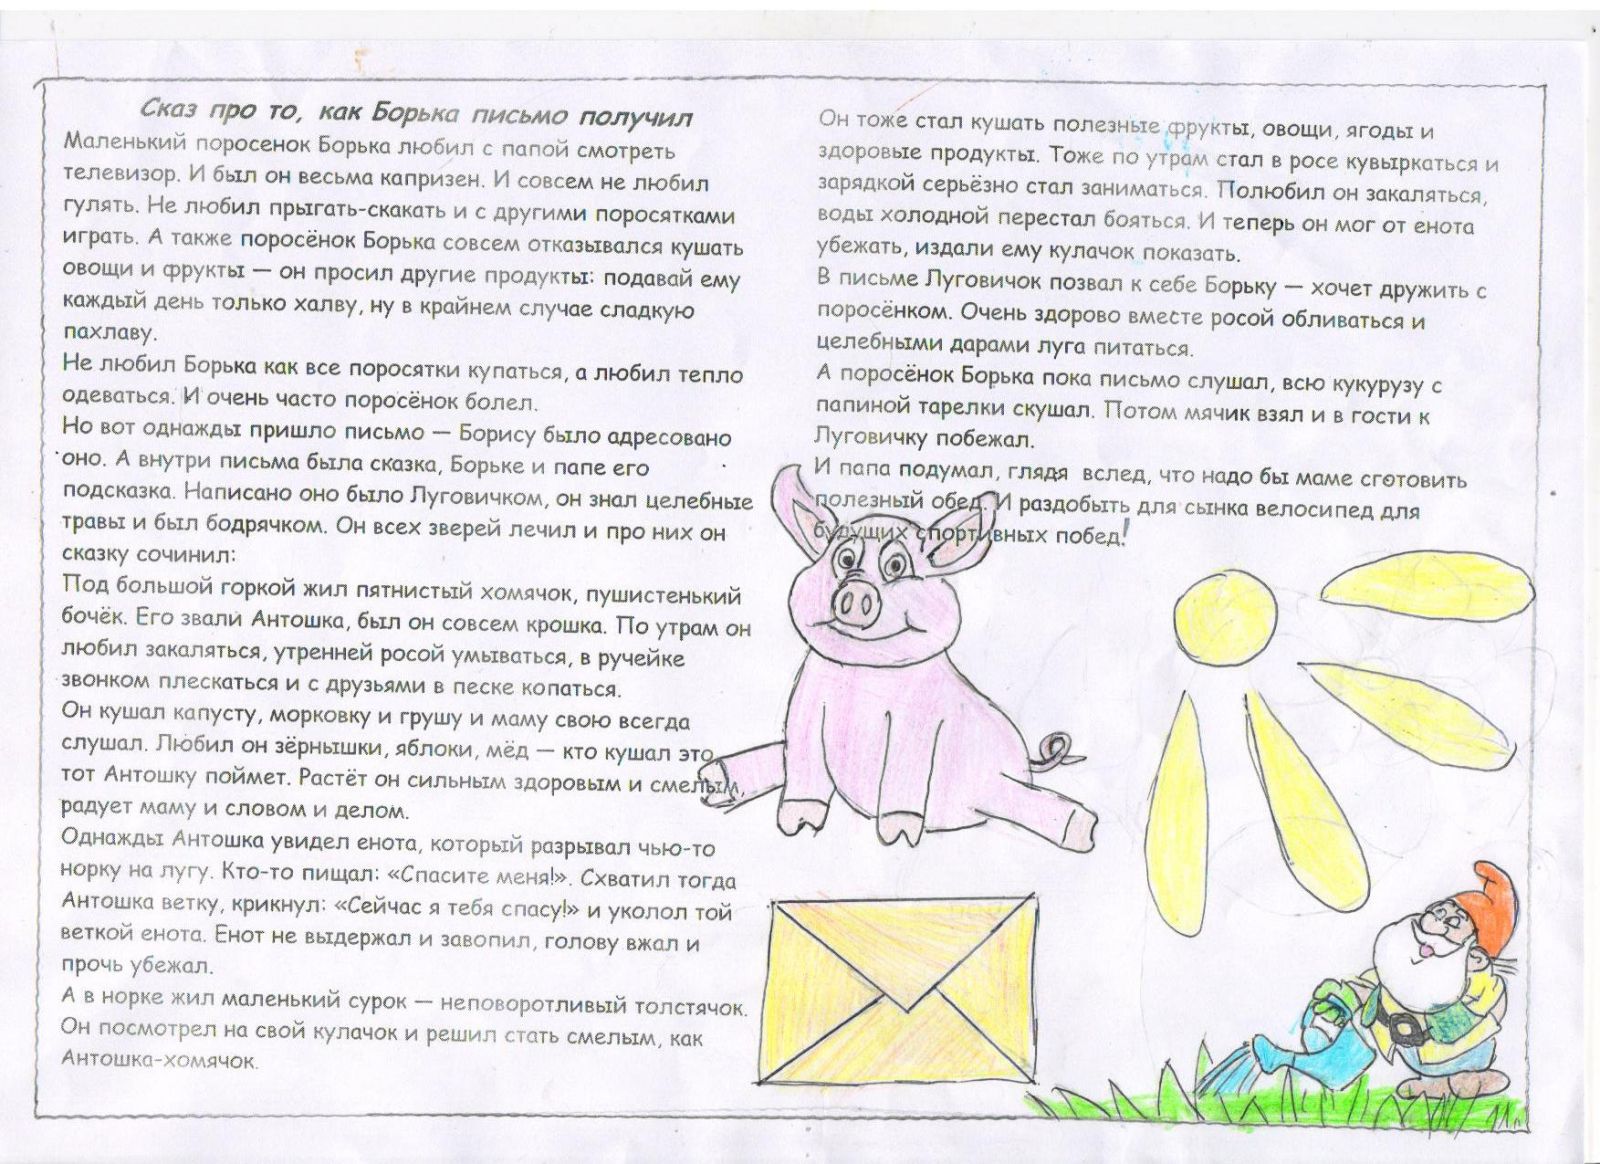 Сказ про то, как Борька письмо получил
Маленький поросенок Борька любил с папой смотреть
телевизор. И был он весьма капризен. И совсем не любил
гулять. Не любил прыгать-скакать и с другими поросятками
играть. А также поросёнок Борька совсем отказывался кушать
овощи и фрукты — он просил другие продукты: подавай ему
каждый день только халву, ну в крайнем случае сладкую
пахлаву.
Не любил Борька как все поросятки купаться, а любил тепло
одеваться. И очень часто поросёнок болел.
Но вот однажды пришло письмо — Борису было адресовано
оно. А внутри письма была сказка, Борьке и папе его
подсказка. Написано оно было Луговичком, он знал целебные
травы и был бодрячком. Он всех зверей лечил и про них он
сказку сочинил:
Под большой горкой жил пятнистый хомячок, пушистенький
бочёк. Его звали Антошка, был он совсем крошка. По утрам он
любил закаляться, утренней росой умываться, в ручейке
звонком плескаться и с друзьями в песке копаться.
Он кушал капусту, морковку и грушу и маму свою всегда
слушал. Любил он зёрнышки, яблоки, мёд — кто кушал это,
тот Антошку поймет. Растёт он сильным здоровым и смелым,
радует маму и словом и делом.
Однажды Антошка увидел енота, который разрывал чью-то
норку на лугу. Кто-то пищал: «Спасите меня!». Схватил тогда
Антошка ветку, крикнул: «Сейчас я тебя спасу!» и уколол той
веткой енота. Енот не выдержал и завопил, голову вжал и
прочь убежал.
А в норке жил маленький сурок — неповоротливый толстячок.
Он посмотрел на свой кулачок и решил стать смелым, как
Антошка-хомячок.
Он тоже стал кушать полезные фрукты, овощи, ягоды и
здоровые продукты. Тоже по утрам стал в росе кувыркаться и
зарядкой серьёзно стал заниматься. Полюбил он закаляться,
воды холодной перестал бояться. И теперь он мог от енота
убежать, издали ему кулачок показать.
В письме Луговичок позвал к себе Борьку — хочет дружить с
поросёнком. Очень здорово вместе росой обливаться и
целебными дарами луга питаться.
А поросёнок Борька пока письмо слушал, всю кукурузу с
папиной тарелки скушал. Потом мячик взял и в гости к
Луговичку побежал.
И папа подумал, глядя вслед, что надо бы маме сготовить
полезный обед. И раздобыть для сынка велосипед для
будущих спортивных побед!